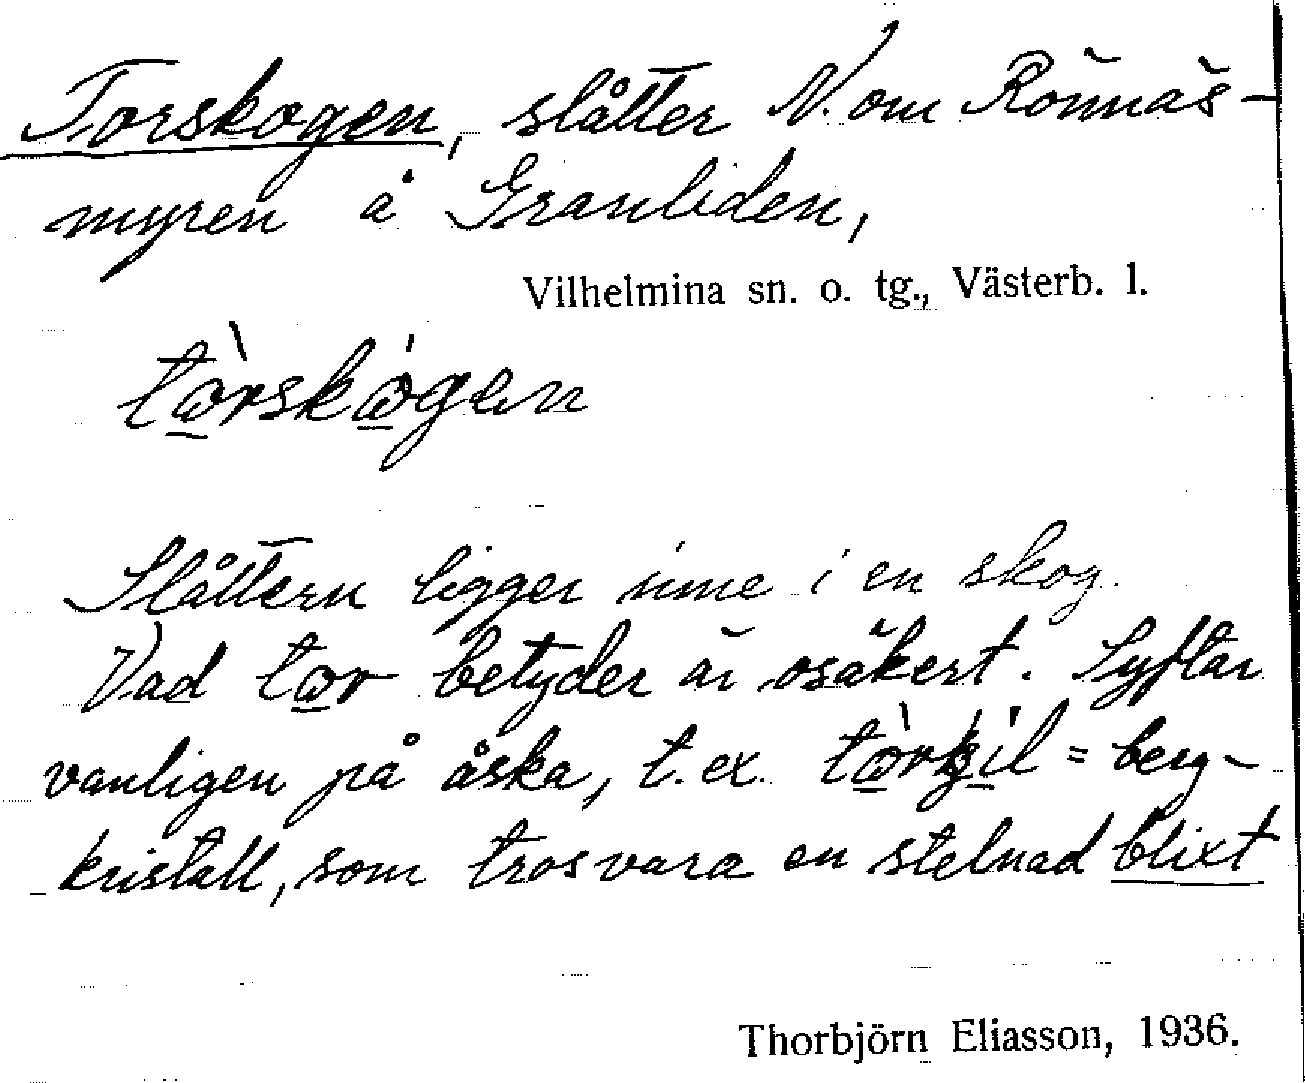 Torskogen, slåtter N. om Rönnäs-
myren å Granliden,
Vilhelmina sn. o. tg., Västerb. l.
tò̱rskó̱gen
Slåttern ligger inne i en skog.
Vad to̱r betyder är osäkert. Syftar
vanligen på åska, t. ex. tò̱rkí̱l = berg-
kristall, som tros vara en stelnad blixt
Thorbjörn Eliasson, 1936.